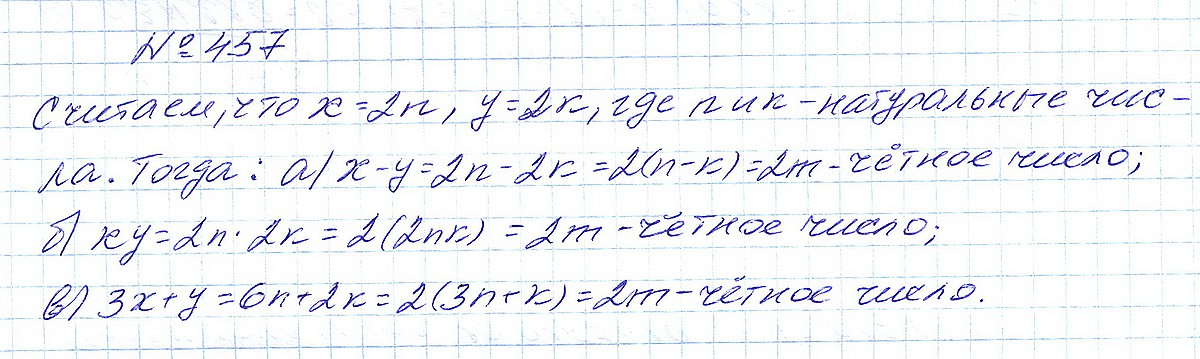 № 457
Считаем, что x = 2n, y = 2к, где n и к - натуральные чис-
ла. Тогда: а) x - y = 2n - 2к = 2(n - к) = 2m - чётное число;
б) xy = 2n · 2к = 2(2nк) = 2m - чётное число;
в) 3x + y = 6n + 2к = 2(3n + к) = 2m - чётное число.